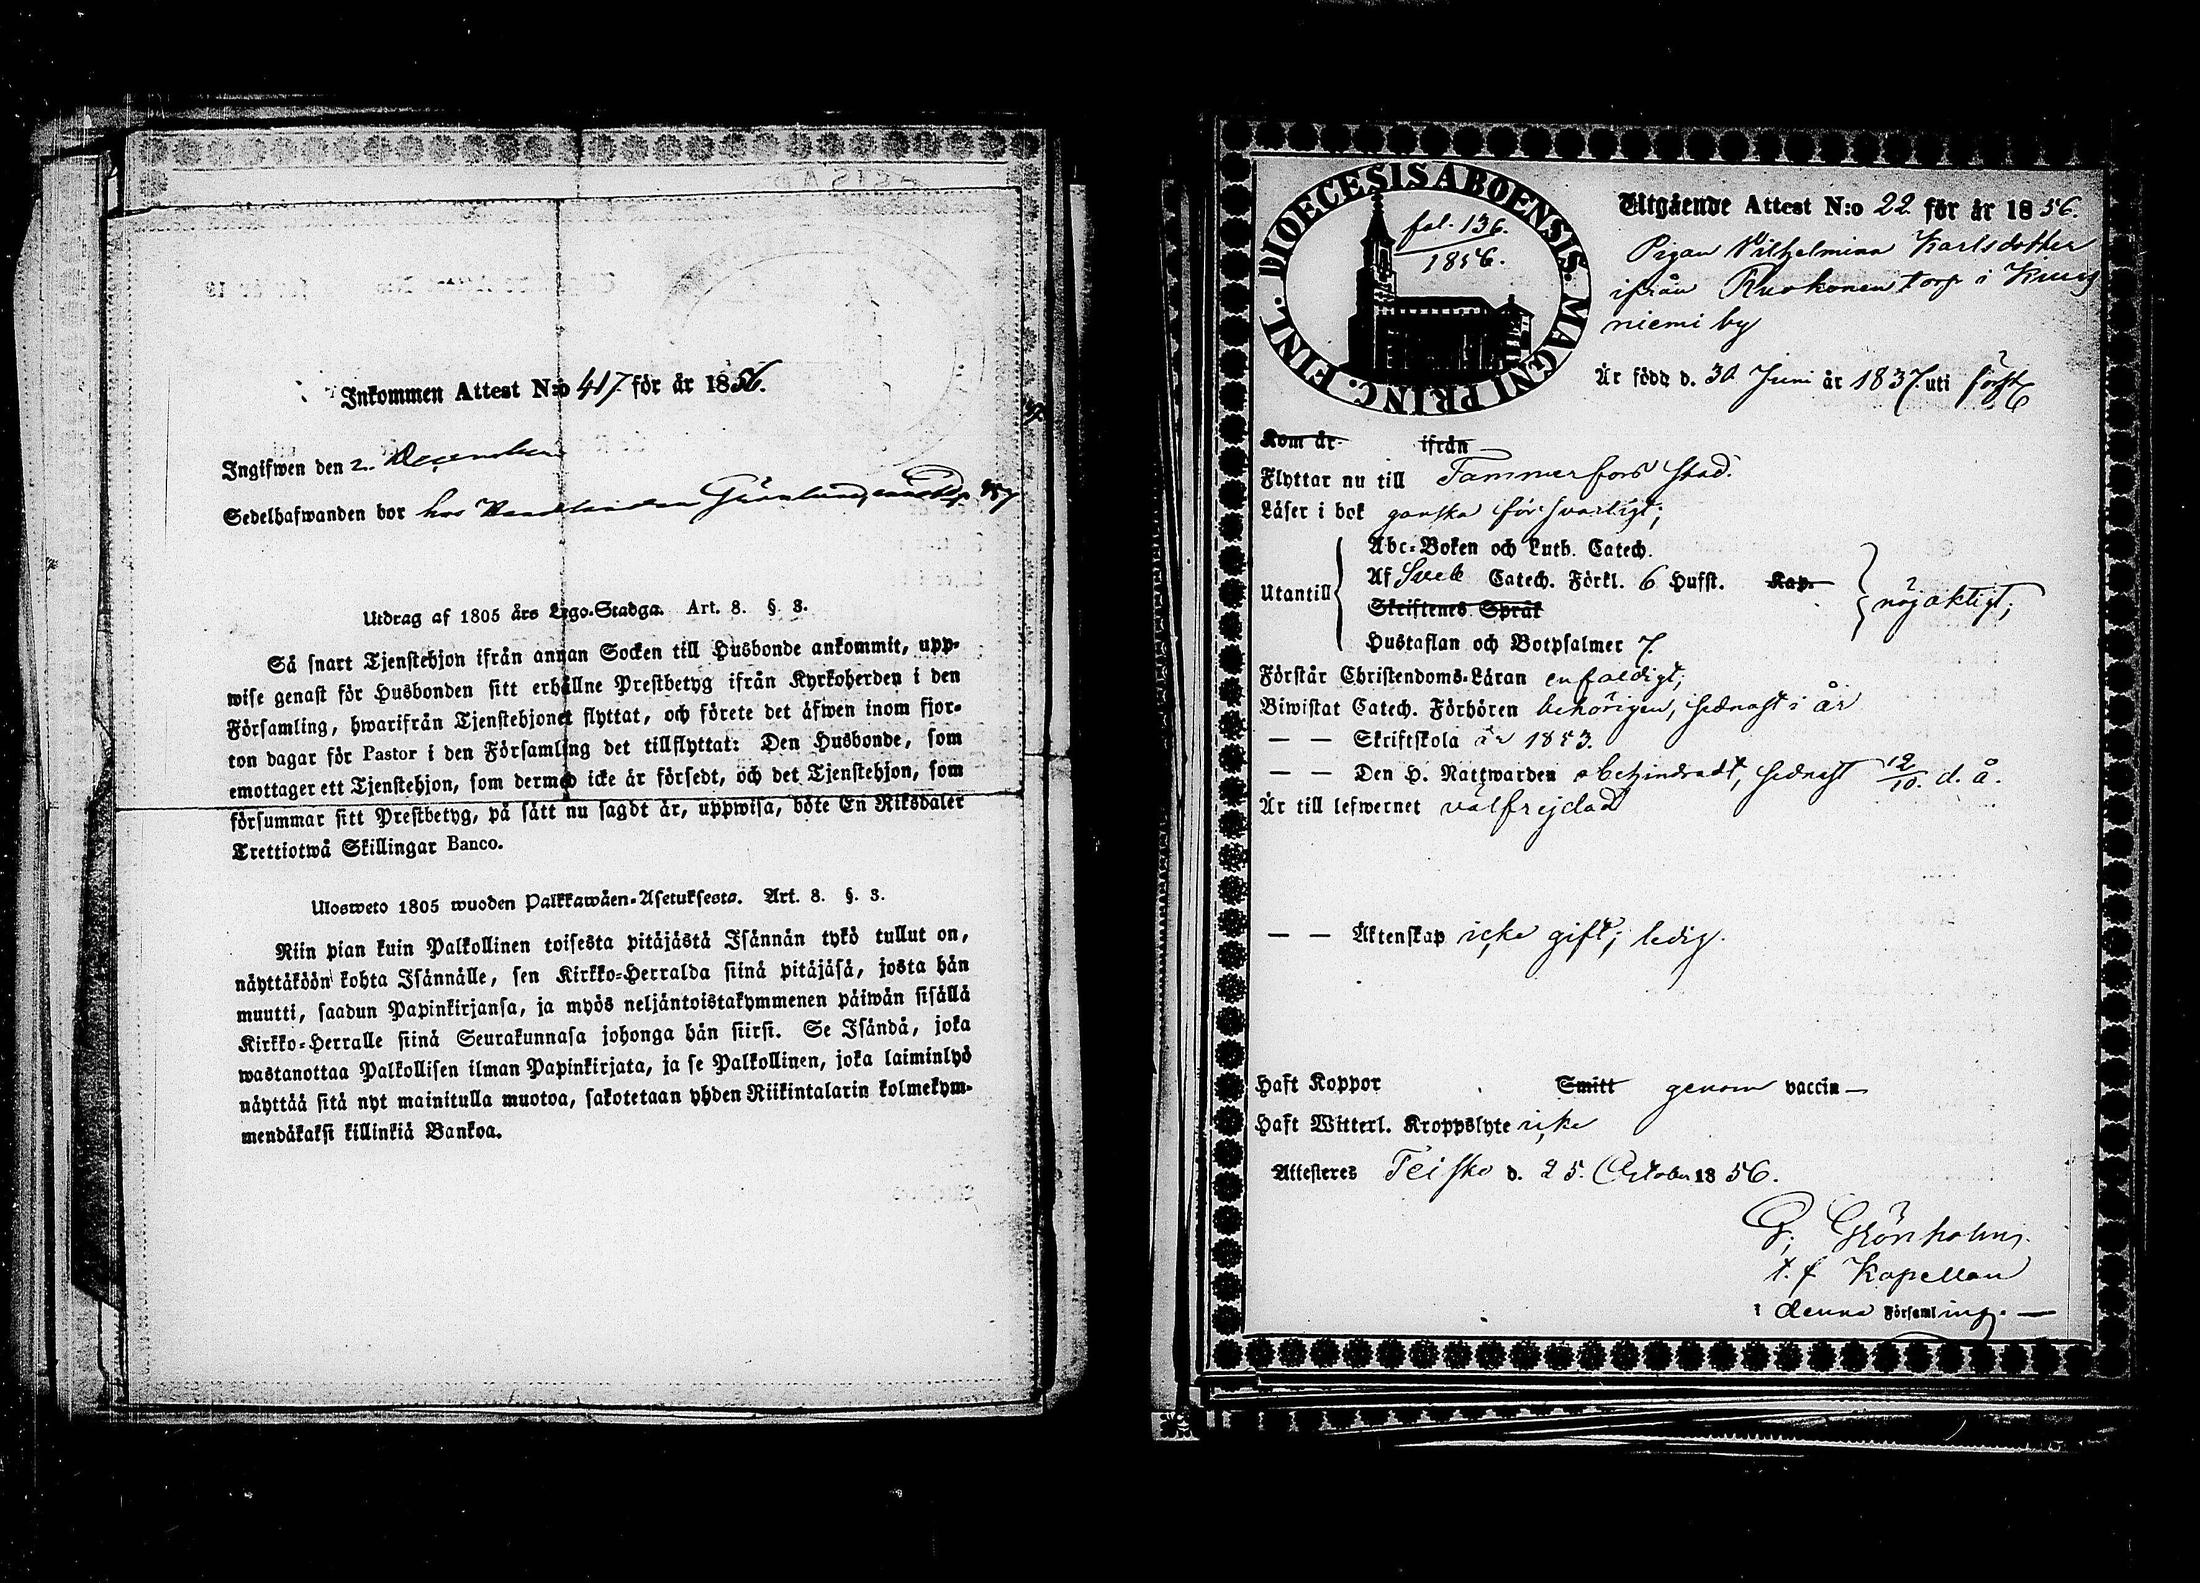 Inkommen Attest N:o 417 för år 1856.
Ingifwen den 2. December
Sedelhafwanden bor hos
Utdrag af 1805 års Lego-Stadga. Art. 8. §. 3.
Så snart Tjenstehjon ifrån annan Socken till Husbonde ankommit, upp-
wise genast för Husbonden sitt erhållne Prestbetyg ifrån Kyrkoherden i den
Församling, hwarifrån Tjenstehjonet flyttat, och förete det äfwen inom fjor-
ton dagar för Pastor i den Församling det tillflyttat: Den Husbonde, som
emottager ett Tjenstehjon, som dermed icke är försedt, och det Tjenstehjon, som
försummar sitt Prestbetyg, på sätt nu sagdt är, uppwisa, böte En Riksdaler
Trettiotwå Skillingar Banco.
Ulosweto 1805 wuoden Palkkawäen-Asetuksesta. Art. 8. §. 3.
Niin pian kuin Palkollinen toisesta pitäjästä Isännän tykö tullut on,
näyttäköön kohta Isännälle, sen Kirkko-Herralda siinä pitäjäsä, josta hän
muutti, saadun Papinkirjansa, ja myös neljäntoistakymmenen päiwän sisällä
Kirkko-Herralle siinä Seurakunnasa johonga hän siirsi. Se Isändä, joka
wastanottaa Palkollisen ilman Papinkirjata, ja se Palkollinen, joka laiminlyö
näyttää sitä nyt mainitulla muotoa, sakotetaan yhden Riikintalarin kolmekym-
mendäkaksi killinkiä Bankoa.
DIOECESIS ABOENSIS. MAGNI PRINC. FINL.
fol. 136.
1856.
Utgående Attest N:o 22 för år 1856.
Pigan Vilhelmina Karlsdotter
ifrån Ruokonen torp i Kuus
niemi by
Är född d. 30 Juni år 1837. uti förs
Kom år ifrån
Flyttar nu till Tammerfors stad.
Läser i bok ganska försvarligt;
Abc-Boken och Luth. Catech.
Utantill Af Sveb Catech. Förkl. 6 Hufst. Kap. nöjaktigt;
Skriftenes Språk
Hustaflan och Botpsalmer 7.
Förstår Christendoms-Läran enfaldigt;
Biwistat Catech. Förhören behörigen, sednast i år
— — Skriftskola år 1853.
— — Den H. Nattwarden obehindradt, sednast 12/10. d. å.
Är till lefwernet välfrejdad
— — Äktenskap icke gift; ledig.
Haft Koppor Smitt genom vaccin —
Haft Witterl. Kroppslyte icke
Attesteres Teisko d. 25. October 1856.
G; Grönholm.
t. f Kapellan
i denna Församling. —